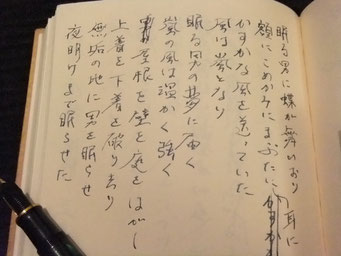 眠る男に蝶が舞いおり 耳に
額にこめかみにまぶたに
かすかな風を送っていた
風は嵐となり
眠る男の夢に届く
嵐の風は温かく強く
屋根を壁を庭をはがし
上着を下着を破り去り
無垢の地に男を眠らせ
夜明けまで眠らせた